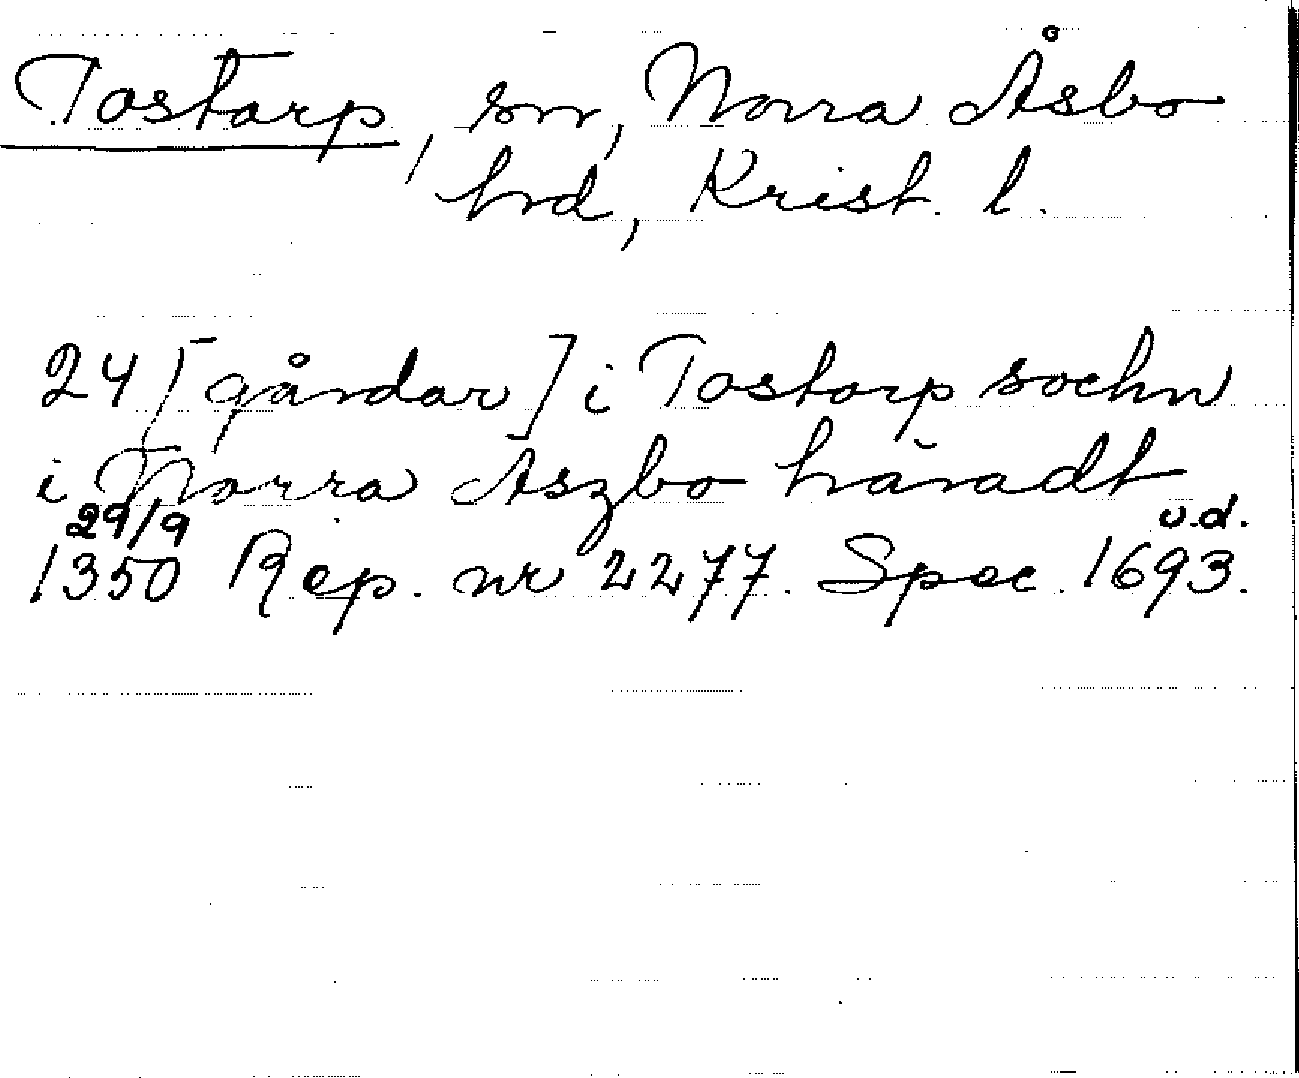 Tostarp, sn, Norra Åsbo
hrd, Krist. l.
24 [gårdar] i Tostarp sochn
i Norra Aszbo häradt
29/9 u.d.
1350 Rep. nr 2277. Spec. 1693.